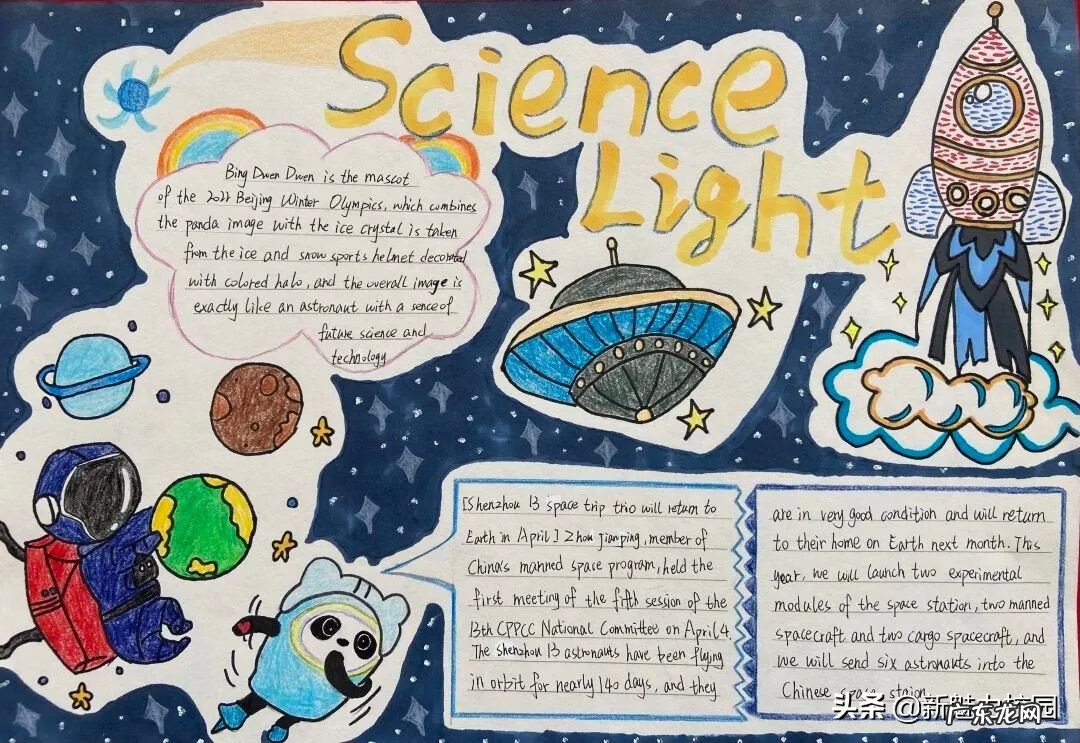 Science
Light
Bing Dwen Dwen is the mascot
of the 2022 Beijing Winter Olympics, which combines
the panda image with the ice crystal is taken
from the ice and snow sports helmet decorated
with colored halo, and the overall image is
exactly like an astronaut with a sence of
future science and
technology
[Shenzhou 13 space trip trio will return to
Earth in April] Zhou jianping, member of
China's manned space program, held the
first meeting of the fifth session of the
13th CPPCC National Committee on April 4.
The Shenzhou 13 astronauts have been flying
in orbit for nearly 140 days, and they
are in very good condition and will return
to their home on Earth next month. This
year, we will launch two experimental
modules of the space station, two manned
spacecraft and two cargo spacecraft, and
we will send six astronauts into the
Chinese space staion
头条 @新
广东龙网